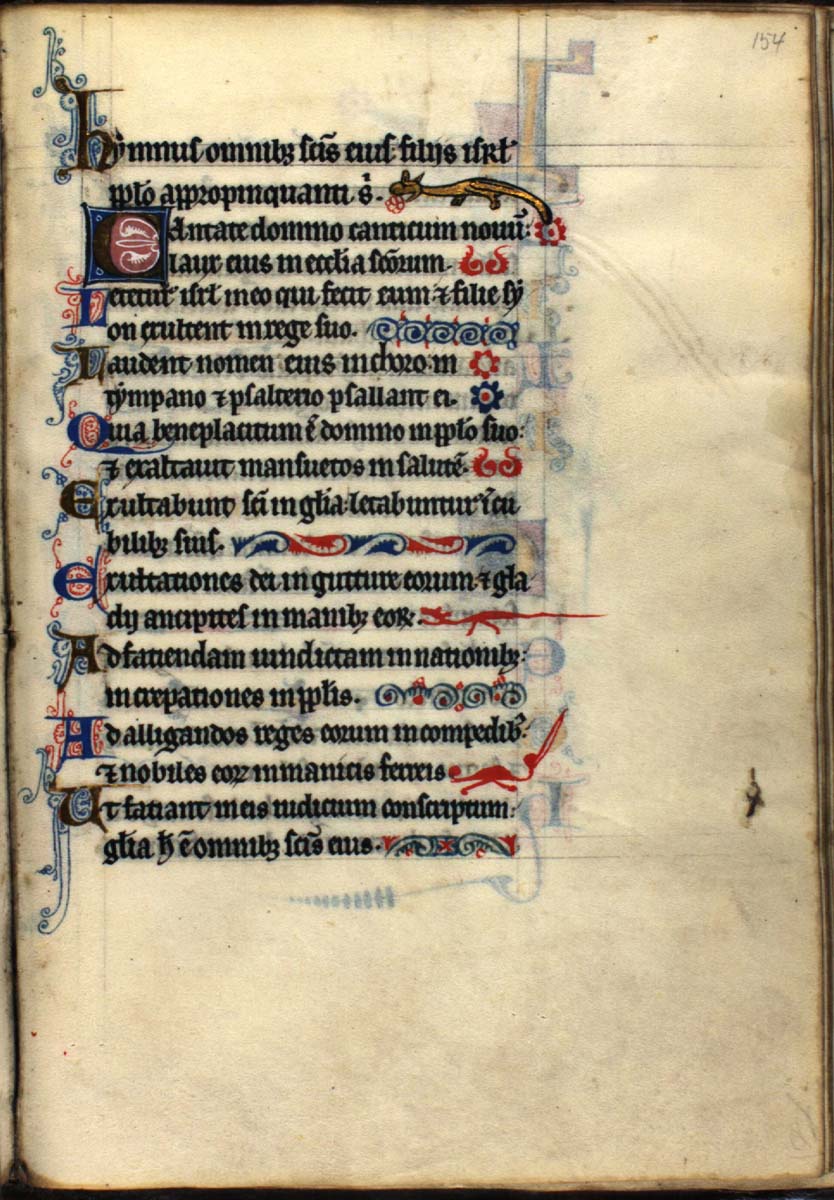 154
hymnus omnibꝫ scīs eius filijs isrł
ppło appropinquanti s̄.
Cantate domino canticum nouū:
laus eius in ecclia scōrum.
Letetur isrł in eo qui fecit eum ⁊ filie sy
on exultent in rege suo.
Laudent nomen eius in choro in
tympano ⁊ psalterio psallant ei.
Quia beneplacitum ē domino in ppło suo:
⁊ exaltauit mansuetos in salutē.
Exultabunt scī in głia: letabuntur ī cu
bilibꝫ suis.
Exultationes dei in gutture eorum ⁊ gła
dij ancipites in manibꝫ eoꝝ.
Ad faciendam uindictam in nationibꝫ:
increpationes in ppłis.
Ad alligandos reges eorum in compedibꝫ:
⁊ nobiles eoꝝ in manicis ferreis
Ut faciant in eis iudicium conscriptum:
głia h̄ ē omnibꝫ scīs eius.